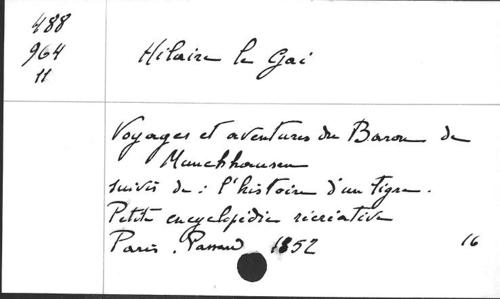 488
964
11
Hilaire le Gai
Voyages et aventures du Baron de
Munchhausen
suivis de : l'histoire d'un tigre.
Petite encyclopédie récréative
Paris. Passard 1852 16